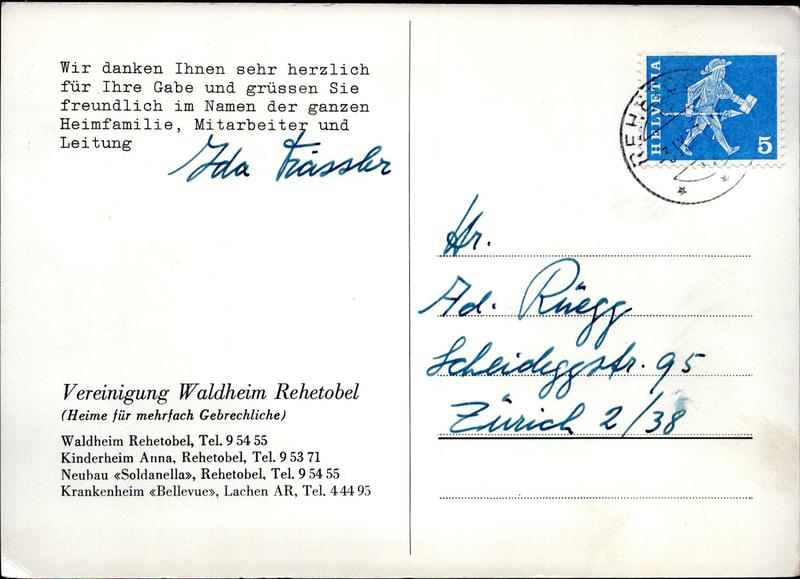 Wir danken Ihnen sehr herzlich
für Ihre Gabe und grüssen Sie
freundlich im Namen der ganzen
Heimfamilie, Mitarbeiter und
Leitung
Ida Frässler
Vereinigung Waldheim Rehetobel
(Heime für mehrfach Gebrechliche)
Waldheim Rehetobel, Tel. 9 54 55
Kinderheim Anna, Rehetobel, Tel. 9 53 71
Neubau «Soldanella», Rehetobel, Tel. 9 54 55
Krankenheim «Bellevue», Lachen AR, Tel. 4 44 95
HELVETIA
5
Hr.
Ad. Rüegg
Scheideggstr. 95
Zürich 2/38